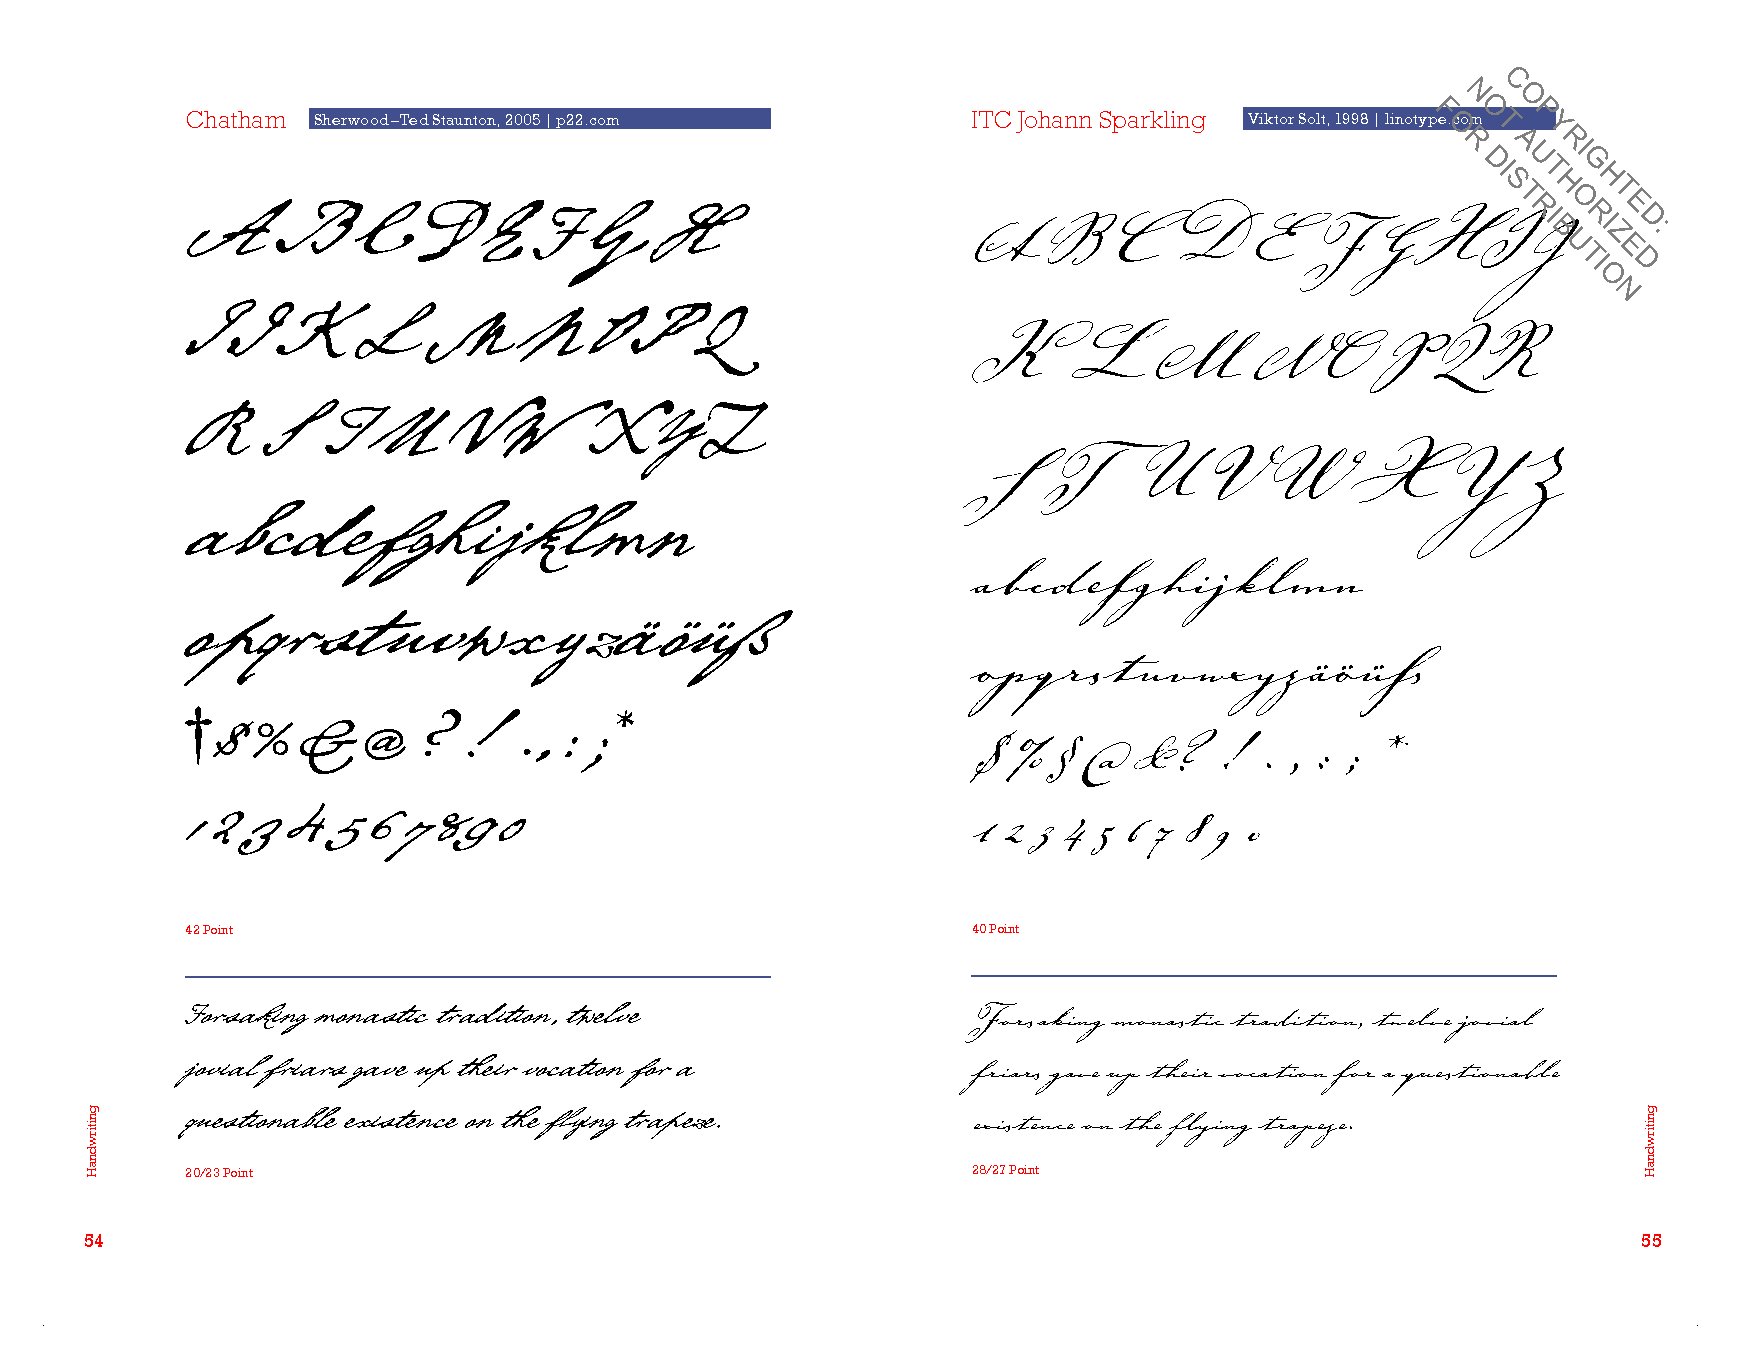 Chatham Sherwood–Ted Staunton, 2005 | p22.com
A B C D E F G H
I J K L M N O P Q
R S T U V W X Y Z
abcdefghijklmn
opqrstuvwxyzäöüß
†$%&@?!.,:;*
1234567890
42 Point
Forsaking monastic tradition, twelve
jovial friars gave up their vocation for a
questionable existence on the flying trapeze.
20/23 Point
Handwriting
54
ITC Johann Sparkling Viktor Solt, 1998 | linotype.com
COPYRIGHTED:
NOT AUTHORIZED
FOR DISTRIBUTION
A B C D E F G H I J
K L M N O P Q R
S T U V W X Y Z
abcdefghijklmn
opqrstuvwxyzäöüß
$%§@&?!.,:;*
1234567890
40 Point
Forsaking monastic tradition, twelve jovial
friars gave up their vocation for a questionable
existence on the flying trapeze.
28/27 Point
Handwriting
55